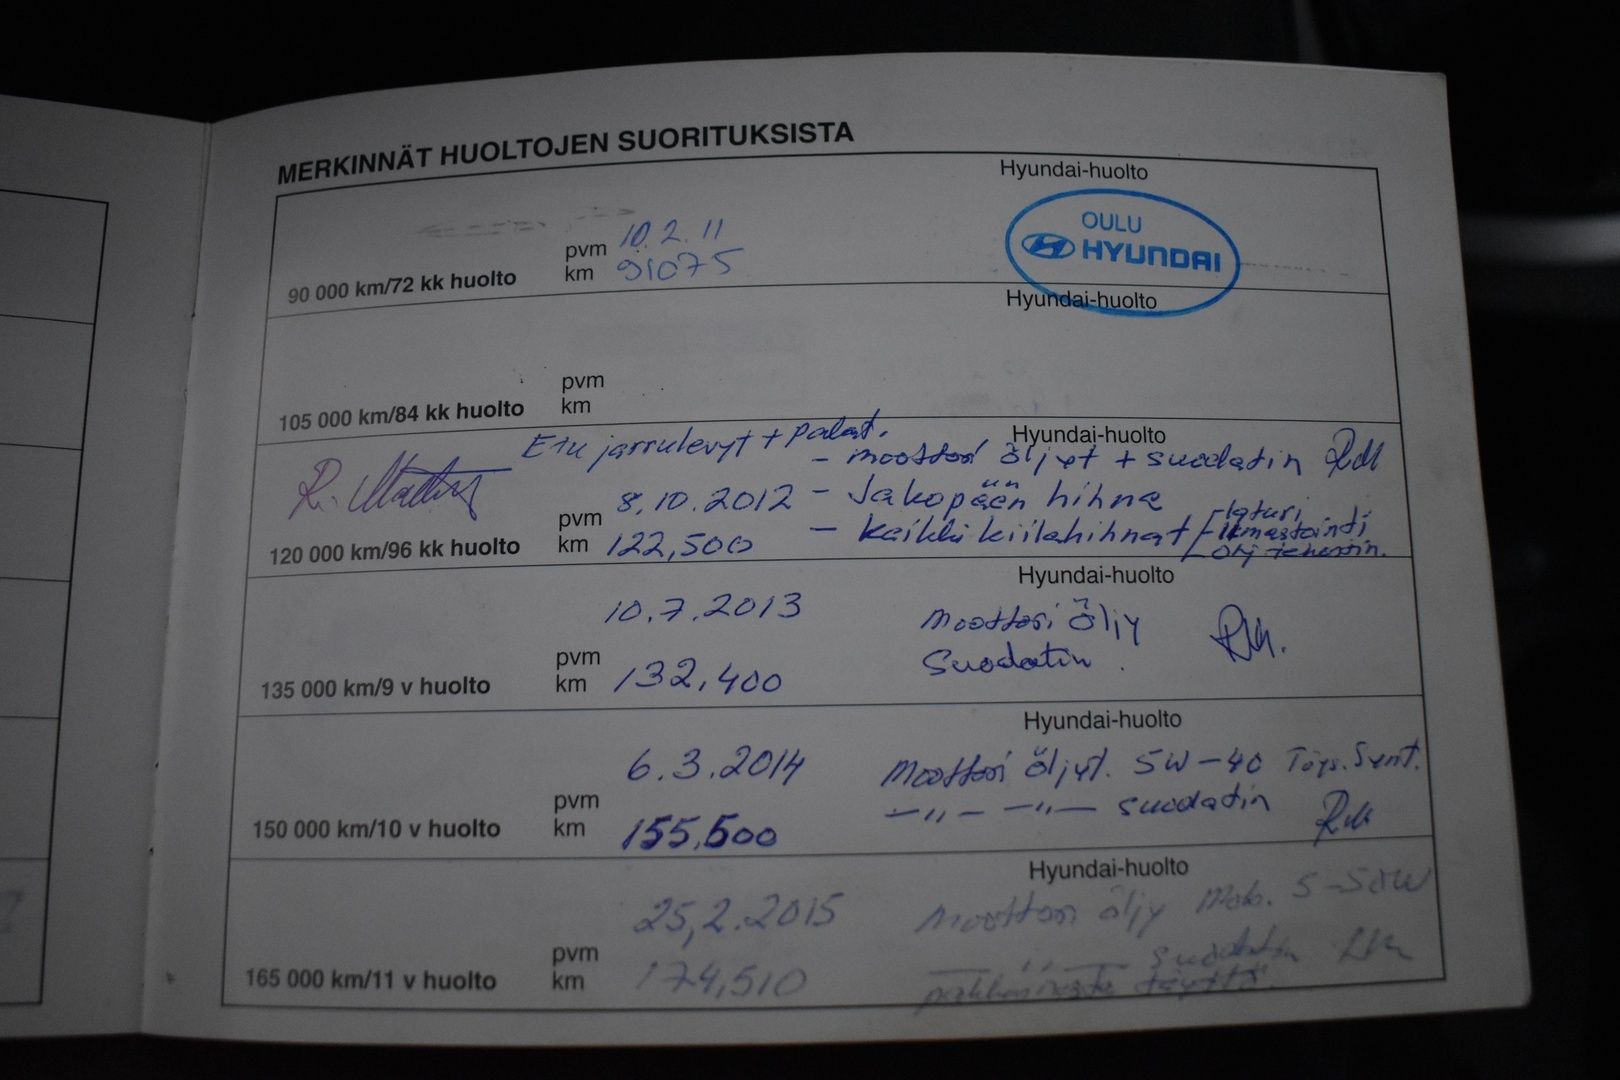 MERKINNÄT HUOLTOJEN SUORITUKSISTA
Hyundai-huolto
OULU
HYUNDAI
pvm 10.2.11
90 000 km/72 kk huolto km 91075
Hyundai-huolto
pvm
105 000 km/84 kk huolto km
Etu jarrulevyt + palat.
Hyundai-huolto
- moottori öljyt + suodatin RM
pvm 8.10.2012 - Jakopään hihna
120 000 km/96 kk huolto km 122,500 - Kaikki kiilahihnat
- laturi
- ilmastointi
- ohj tehostin.
Hyundai-huolto
pvm 10.7.2013 moottori öljy
135 000 km/9 v huolto km 132,400 suodatin. RM.
Hyundai-huolto
pvm 6.3.2014 moottori öljyt. 5W-40 Täys. Synt.
150 000 km/10 v huolto km 155,500 -"- -"- suodatin RM
Hyundai-huolto
pvm 25,2.2015 moottori öljy
165 000 km/11 v huolto km 174,510 -"- suodatin RM
täyttö.